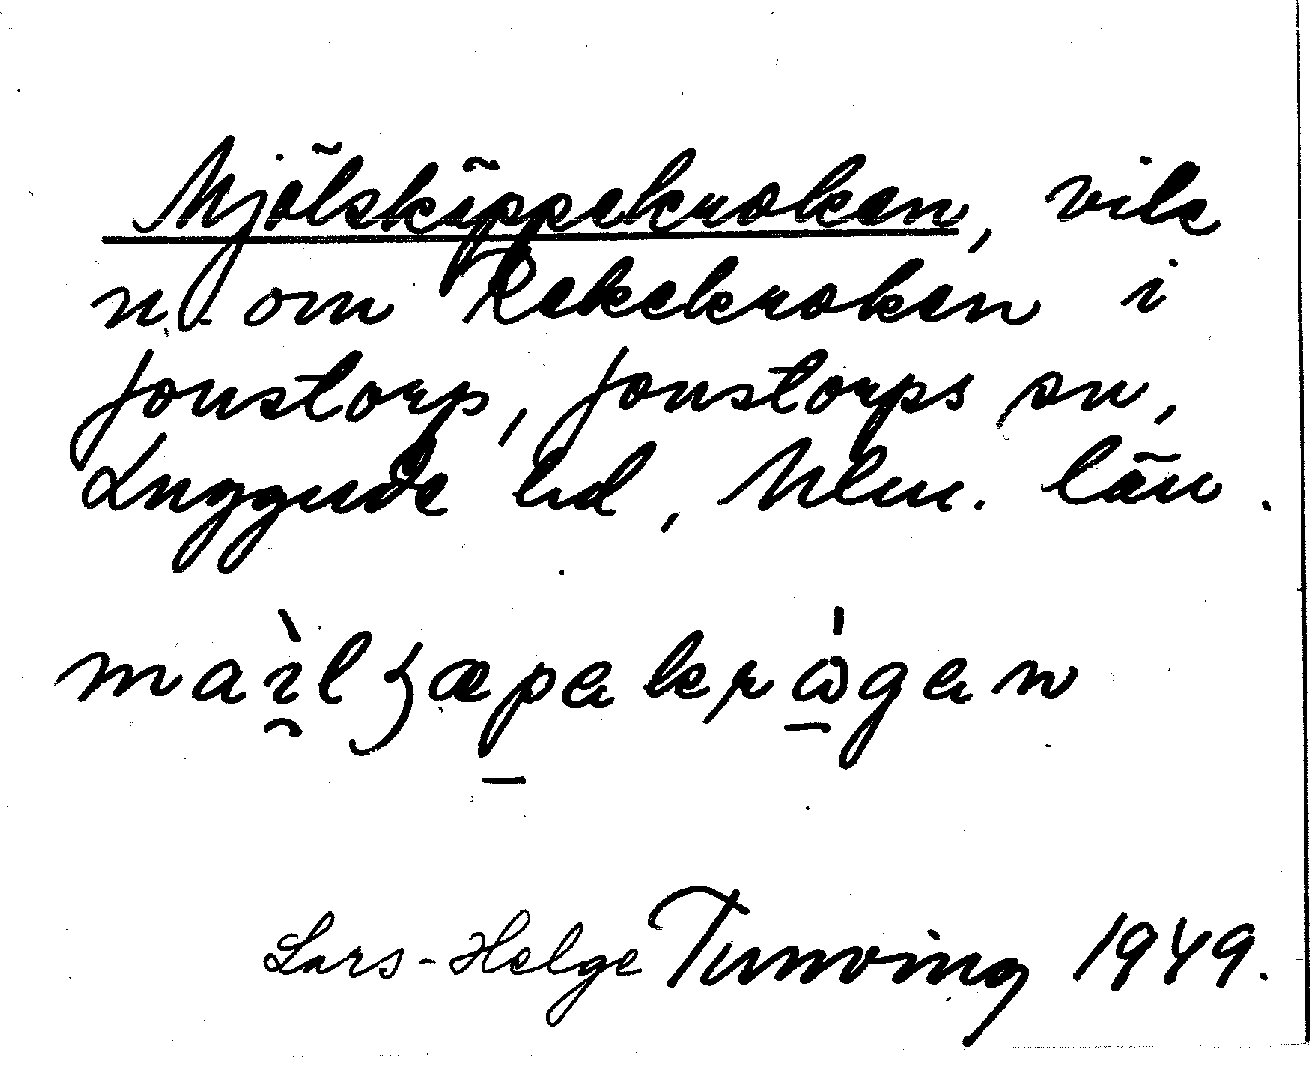 Mjölsköppekroken, vik
n. om Rekekroken i
Jonstorp, Jonstorps sn,
Luggude hd, Mlm. län.
maìlʒæpakrώgan
Lars-Helge Tunving 1949.